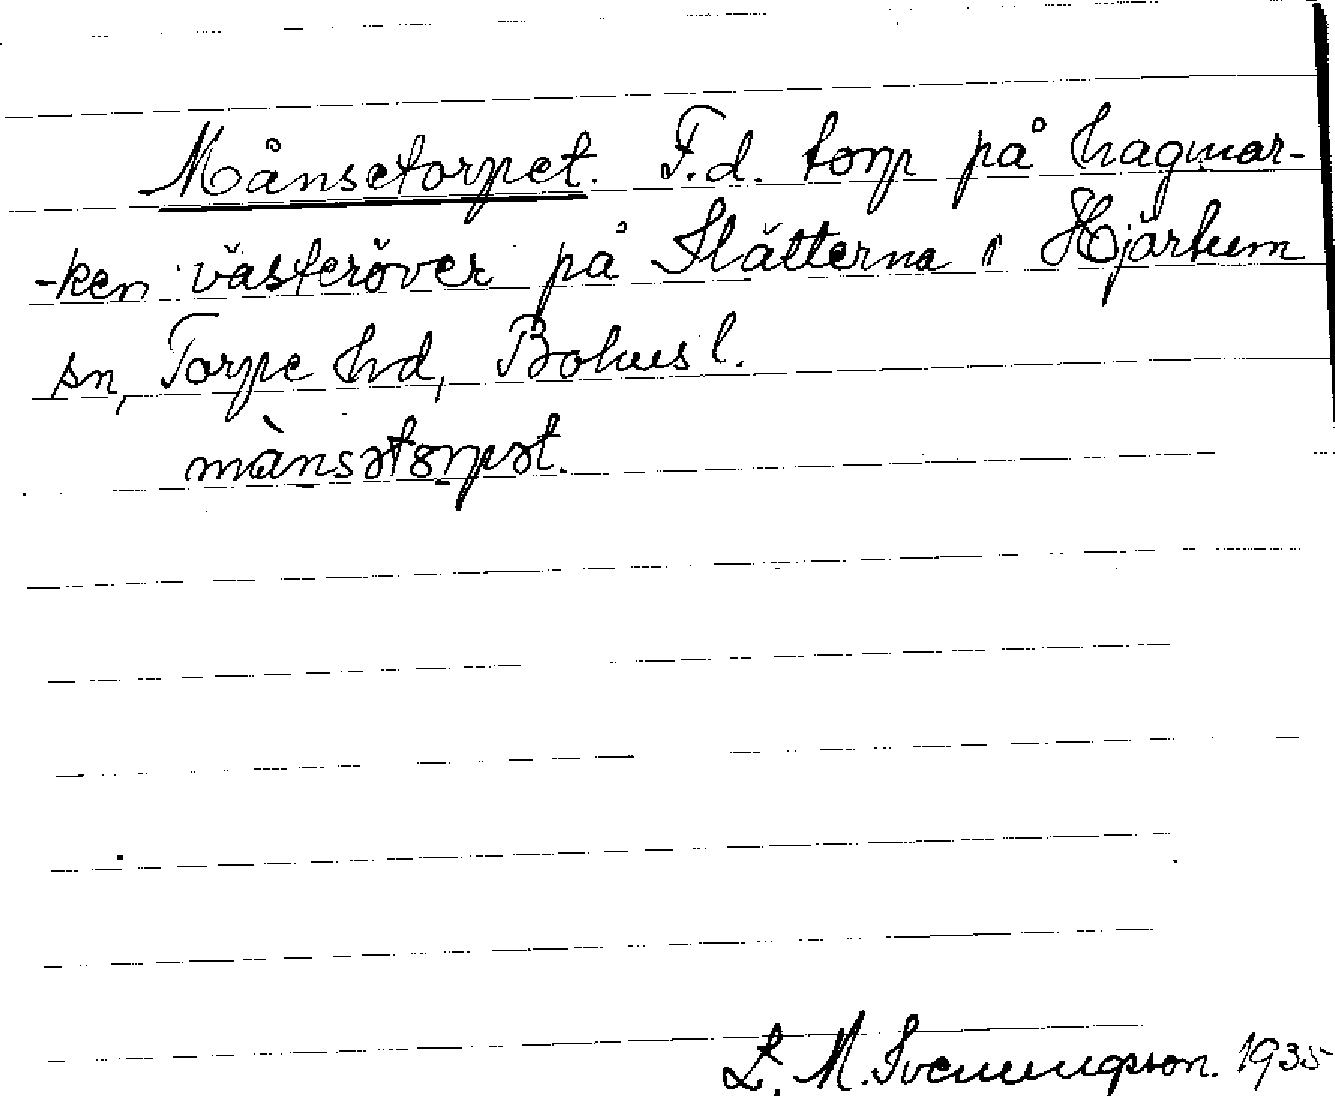 Månsetorpet. F.d. torp på hagmar-
-ken västeröver på Slätterna i Hjärtum
sn, Torpe hd, Bohusl.
mànsətorpət.
L. M. Svenungsson. 1935